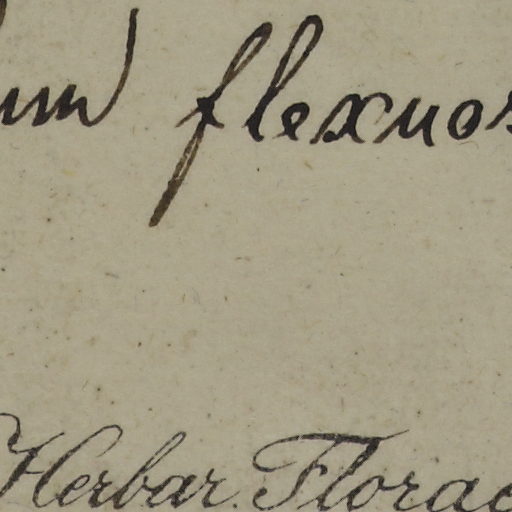 um flexuos
Herbar. Florae